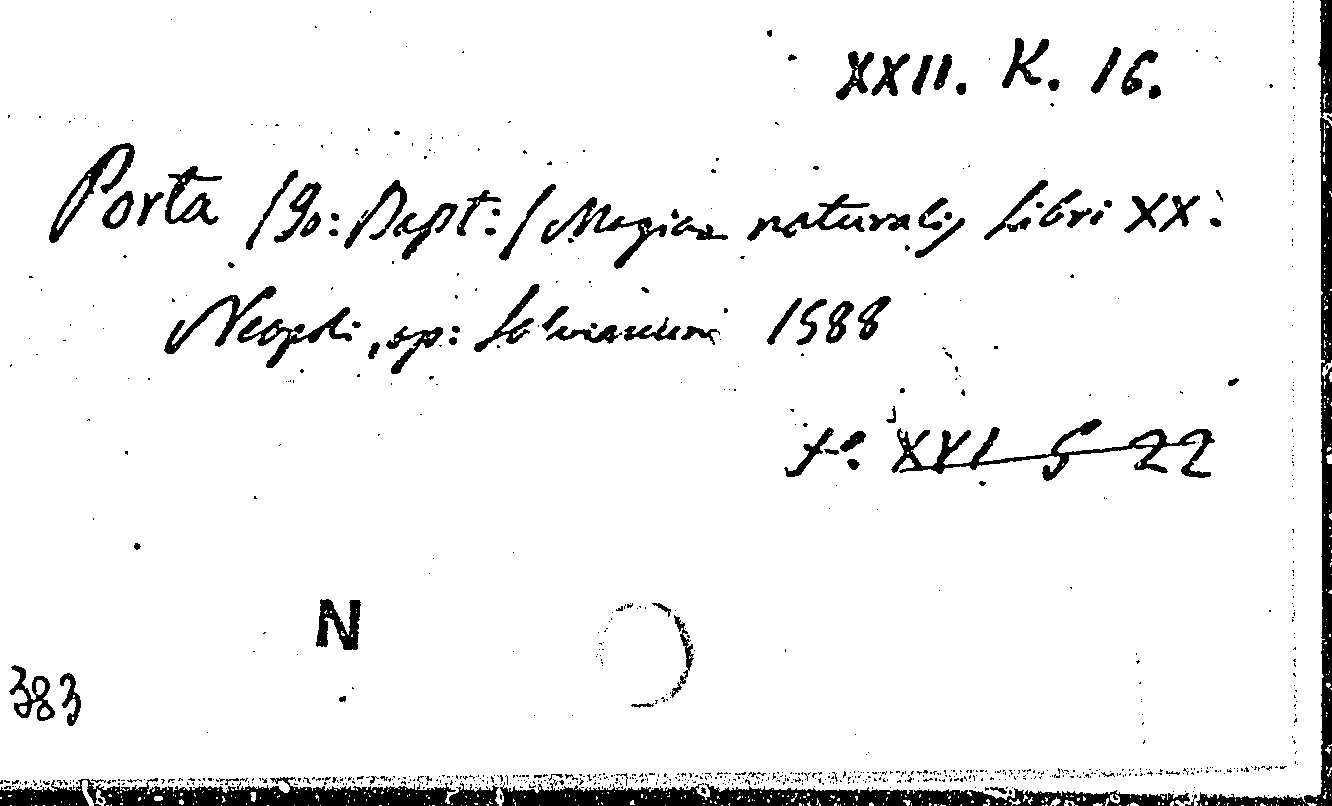 XXII. K. 16.
Porta /Jo: Bapt:/ Magiae naturalis Libri XX.
Neapoli, ap: Salvianum 1588
f°. XVI G 22
N
383